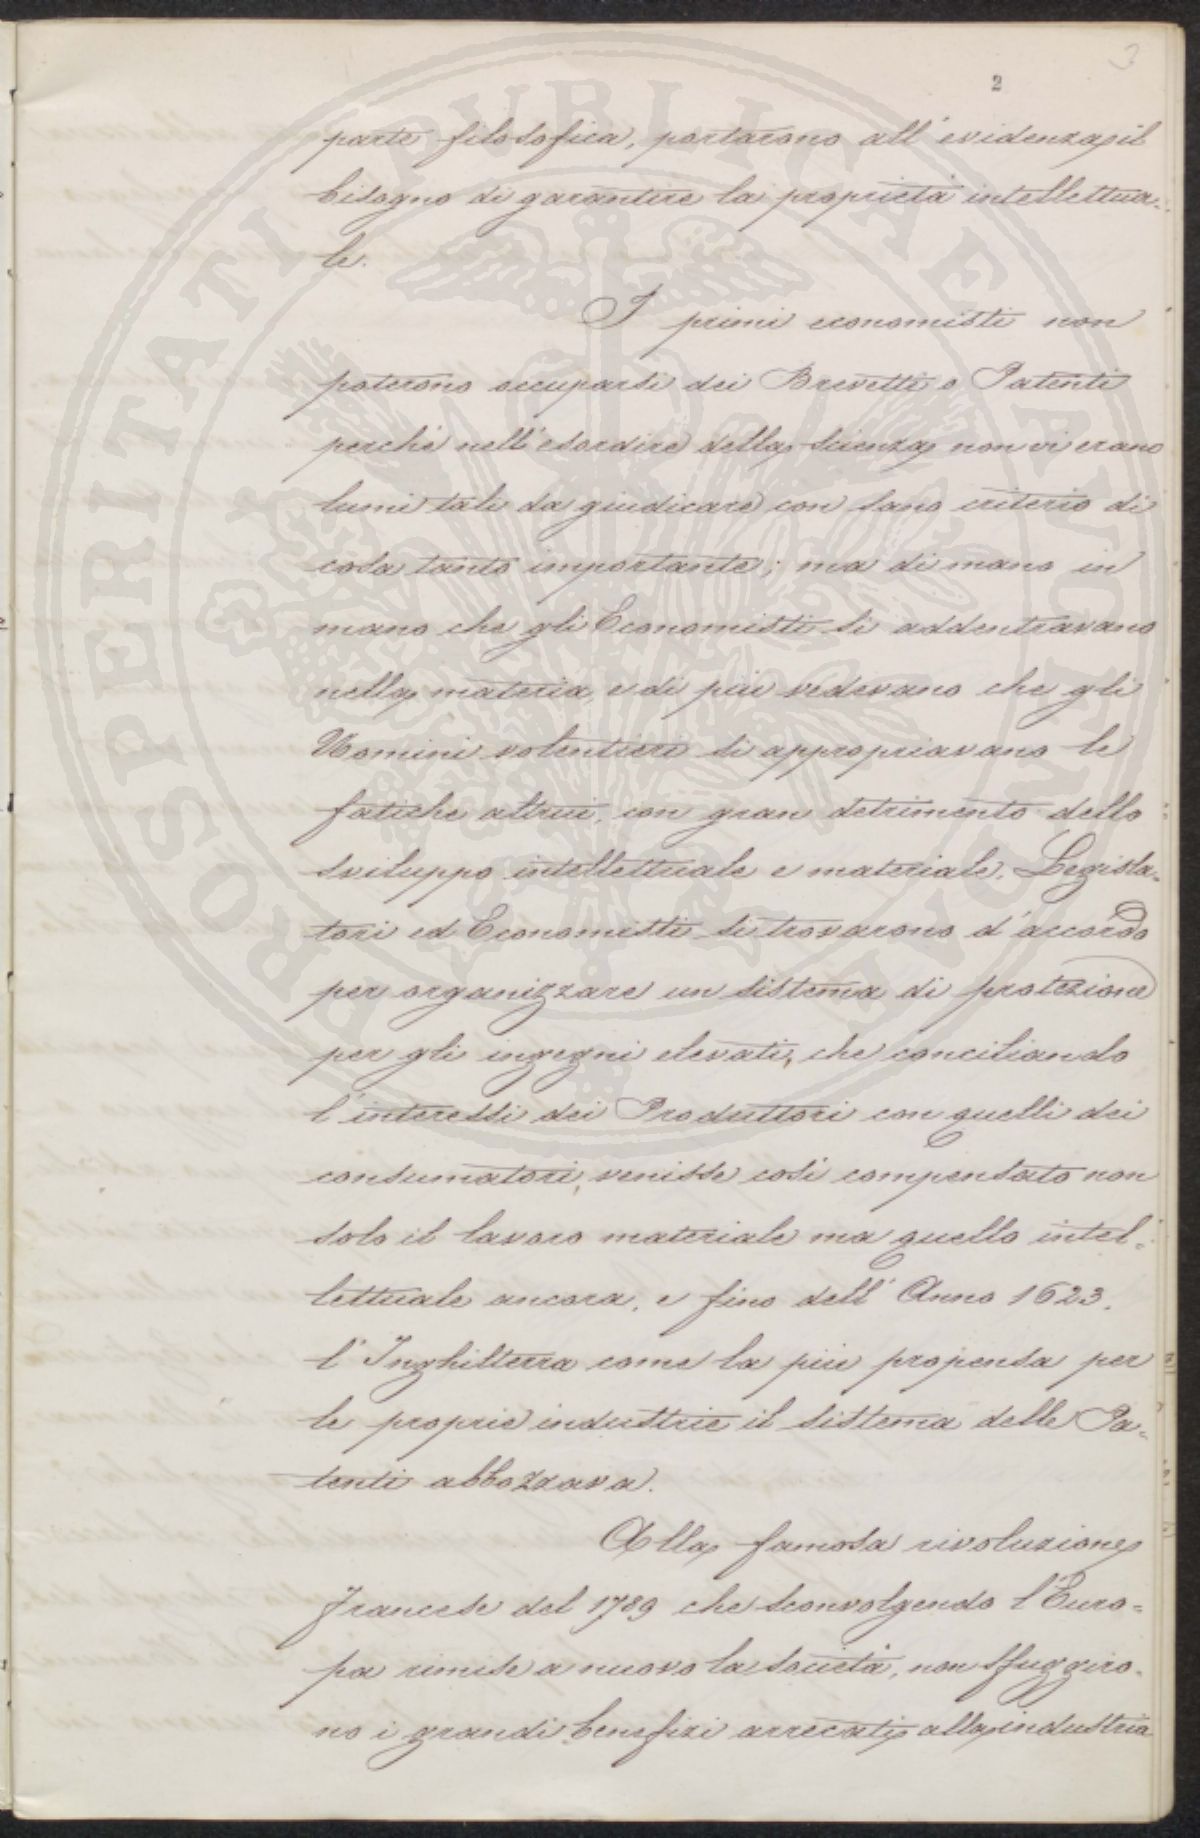 3
2
parte filosofica, portarono all'evidenza il
bisogno di garantire la proprietà intellettua-
le.
I primi economisti non
poterono occuparsi dei Brevetti o Patenti
perchè nell'esordire della scienza non vi erano
lumi tali da giudicare con sano criterio di
cosa tanto importante; ma di mano in
mano che gli Economisti si addentravano
nella materia, e di più vedevano che gli
Uomini volentieri si appropriavano le
fatiche altrui, con gran detrimento dello
sviluppo intellettuale e materiale, Legisla-
tori ed Economisti si trovarono d'accordo
per organizzare un sistema di protezione
per gli ingegni elevati, che conciliando
l'interessi dei Produttori con quelli dei
consumatori, venisse così compensato non
solo il lavoro materiale ma quello intel-
lettuale ancora, e fino dell'Anno 1623.
l'Inghilterra come la più propensa per
le proprie industrie il sistema delle Pa-
tenti abbozzava.
Alla famosa rivoluzione
francese del 1789 che sconvolgendo l'Euro-
pa rimise a nuovo la società, non sfuggiro-
no i grandi benefizi arrecati alla industria
PROSPERITATI PVBLICAE AVGENDAE